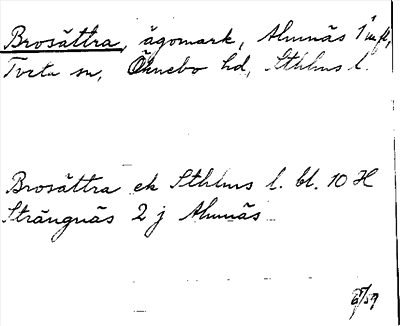 Brosättra, ägomark, Almnäs 1 m fl,
Turta sn, Öknebo hd, Sthlms l.
Brosättra ek Sthlms l. bl. 10 H
Strängnäs 2 j Almnäs